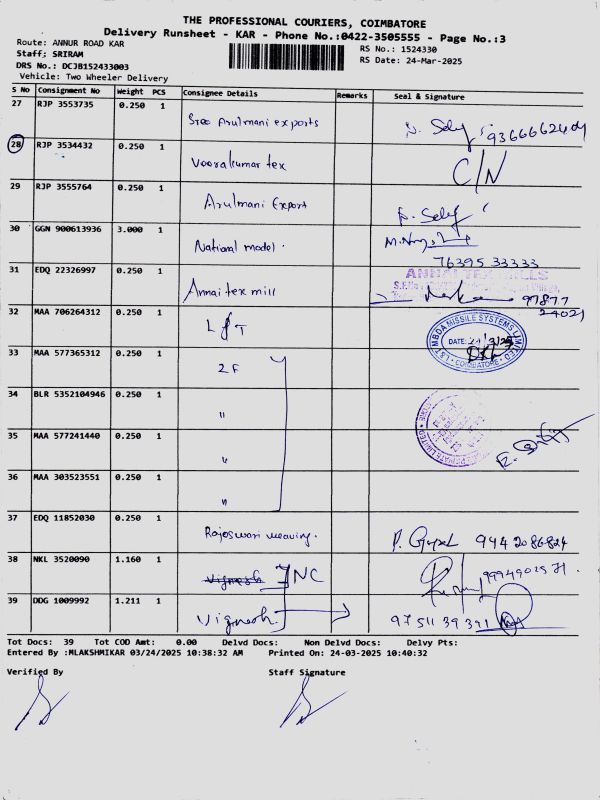 THE PROFESSIONAL COURIERS, COIMBATORE
Delivery Runsheet - KAR - Phone No.:0422-3505555 - Page No.:3
Route: ANNUR ROAD KAR
RS No.: 1524330
Staff: SRIRAM
RS Date: 24-Mar-2025
DRS No.: DCJB152433003
Vehicle: Two Wheeler Delivery
S No Consignment No Weight PCS Consignee Details Remarks Seal & Signature
27 RJP 3553735 0.250 1 Sree Arulmani exports 9366662404
28 RJP 3534432 0.250 1 Veerakumar tex C/N
29 RJP 3555764 0.250 1 Arulmani Export
30 GGN 900613936 3.000 1 National model. 76395 33333
31 EDQ 22326997 0.250 1 Annai tex mill ANNAI TEX MILLS 97877 24021
32 MAA 706264312 0.250 1 L & T L&T MBDA MISSILE SYSTEMS LIMITED DATE: COIMBATORE
33 MAA 577365312 0.250 1 2F
34 BLR 5352104946 0.250 1 "
35 MAA 577241440 0.250 1 "
36 MAA 303523551 0.250 1 "
37 EDQ 11852030 0.250 1 Rajeswari weaving. 944 2086824
38 NKL 3520090 1.160 1 Vignesh NC
39 DDG 1009992 1.211 1 Vignesh 97511 39391
Tot Docs: 39 Tot COD Amt: 0.00 Delvd Docs: Non Delvd Docs: Delvy Pts:
Entered By :MLAKSHMIKAR 03/24/2025 10:38:32 AM Printed On: 24-03-2025 10:40:32
Verified By Staff Signature